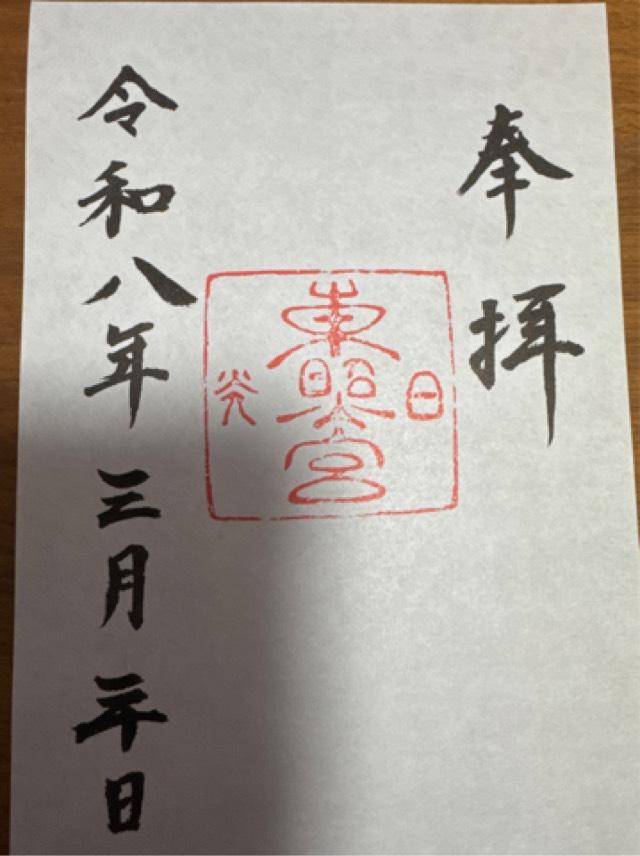 奉拝
日光
東照宮
令和八年三月二十日